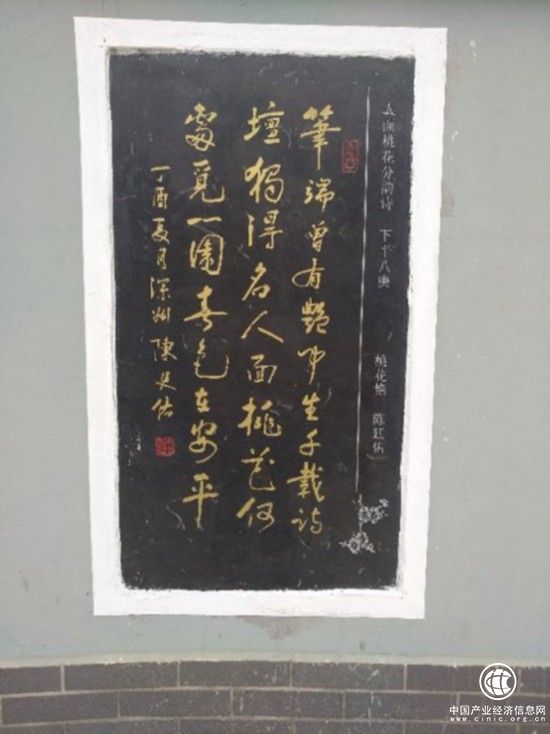 人面桃花分韵诗 下平八庚
桃花 陈廷佑
筆端曾有艷中生千載詩
壇獨得名人面桃花何
處覓一園春色在安平
丁酉夏月深州陳廷佑
中国产业经济信息网
www.cinic.org.cn